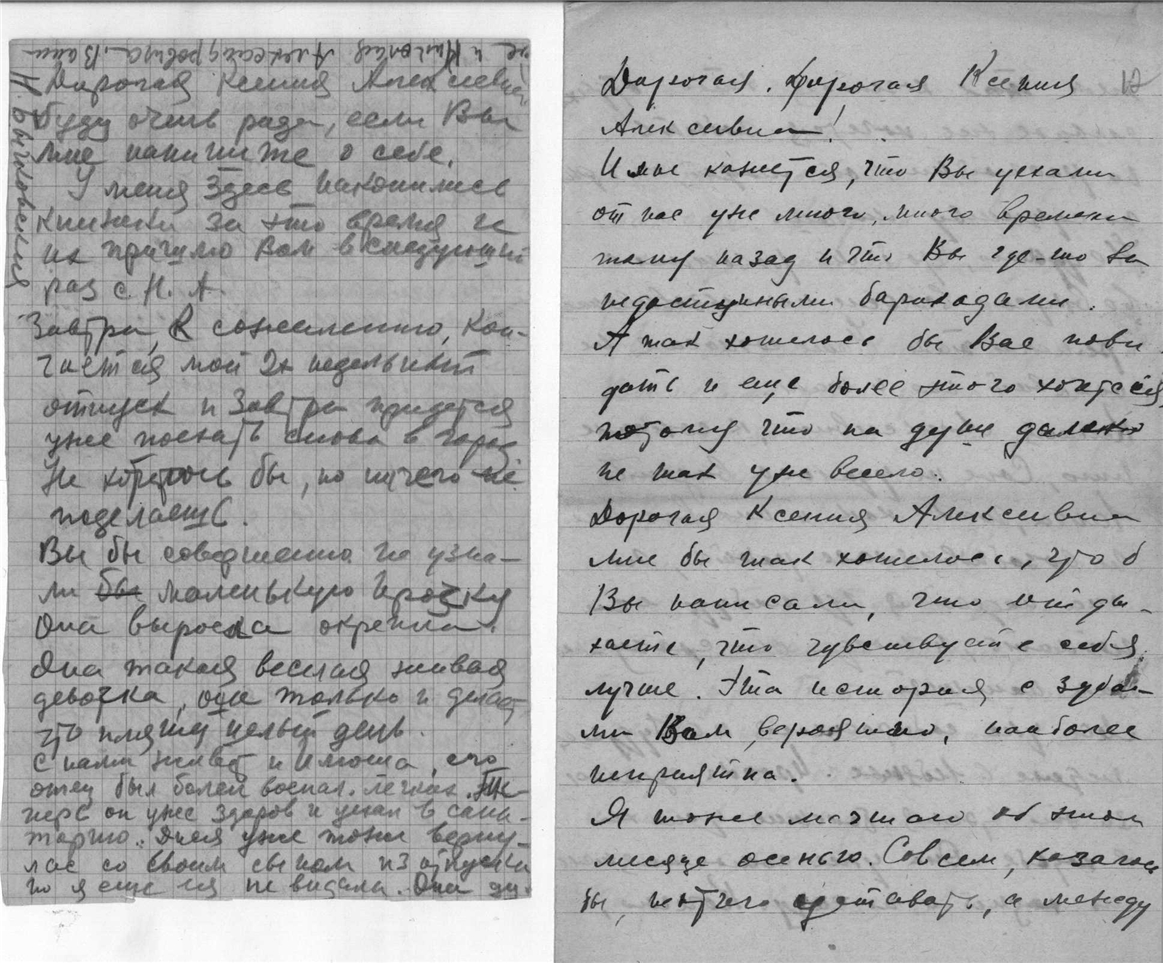 Николая Александровича. Ваш
Н Быковский
Дорогая Ксения Алексевна,
буду очень рада, если Вы
мне напишите о себе.
У меня здесь накопились
книжки за это время и
их пришлю Вам в следующий
раз с Н. А.
Завтра, к сожалению, кон-
чается мой 2х недельный
отпуск и завтра придется
уже поехать снова в город
Не хотелось бы, но ничего не
поделаешь.
Вы бы совершенно не узна-
ли бы маленькую Ирочку
Она выросла окрепла.
Она такая веселая живая
девочка, она только и делает
что пляшет целый день.
С нами живет и Илюша, его
отец был болен воспал. легких. Те-
перь он уже здоров и уехал в сана-
торию. уже тоже верну-
лась со своим сыном из отпуска
но я еще ея не видала. Она
Дорогая, дорогая Ксения
Алексевна!
И мне кажется, что Вы уехали
от нас уже много, много времени
тому назад и что Вы где-то за
недоступными барикадами.
А так хотелось бы Вас пови-
дать и еще более этого хочется,
потому что на душе далеко
не так уж весело.
Дорогая Ксения Алексевна
мне бы так хотелось, что б
Вы написали, что отды-
хаете, что чувствуете себя
лучше. Эта история с зуба-
ми Вам, вероятно, наиболее
неприятна.
Я тоже мечтаю об этом
месяце осенью. Совсем, казалось
бы, не от чего уставать, а между